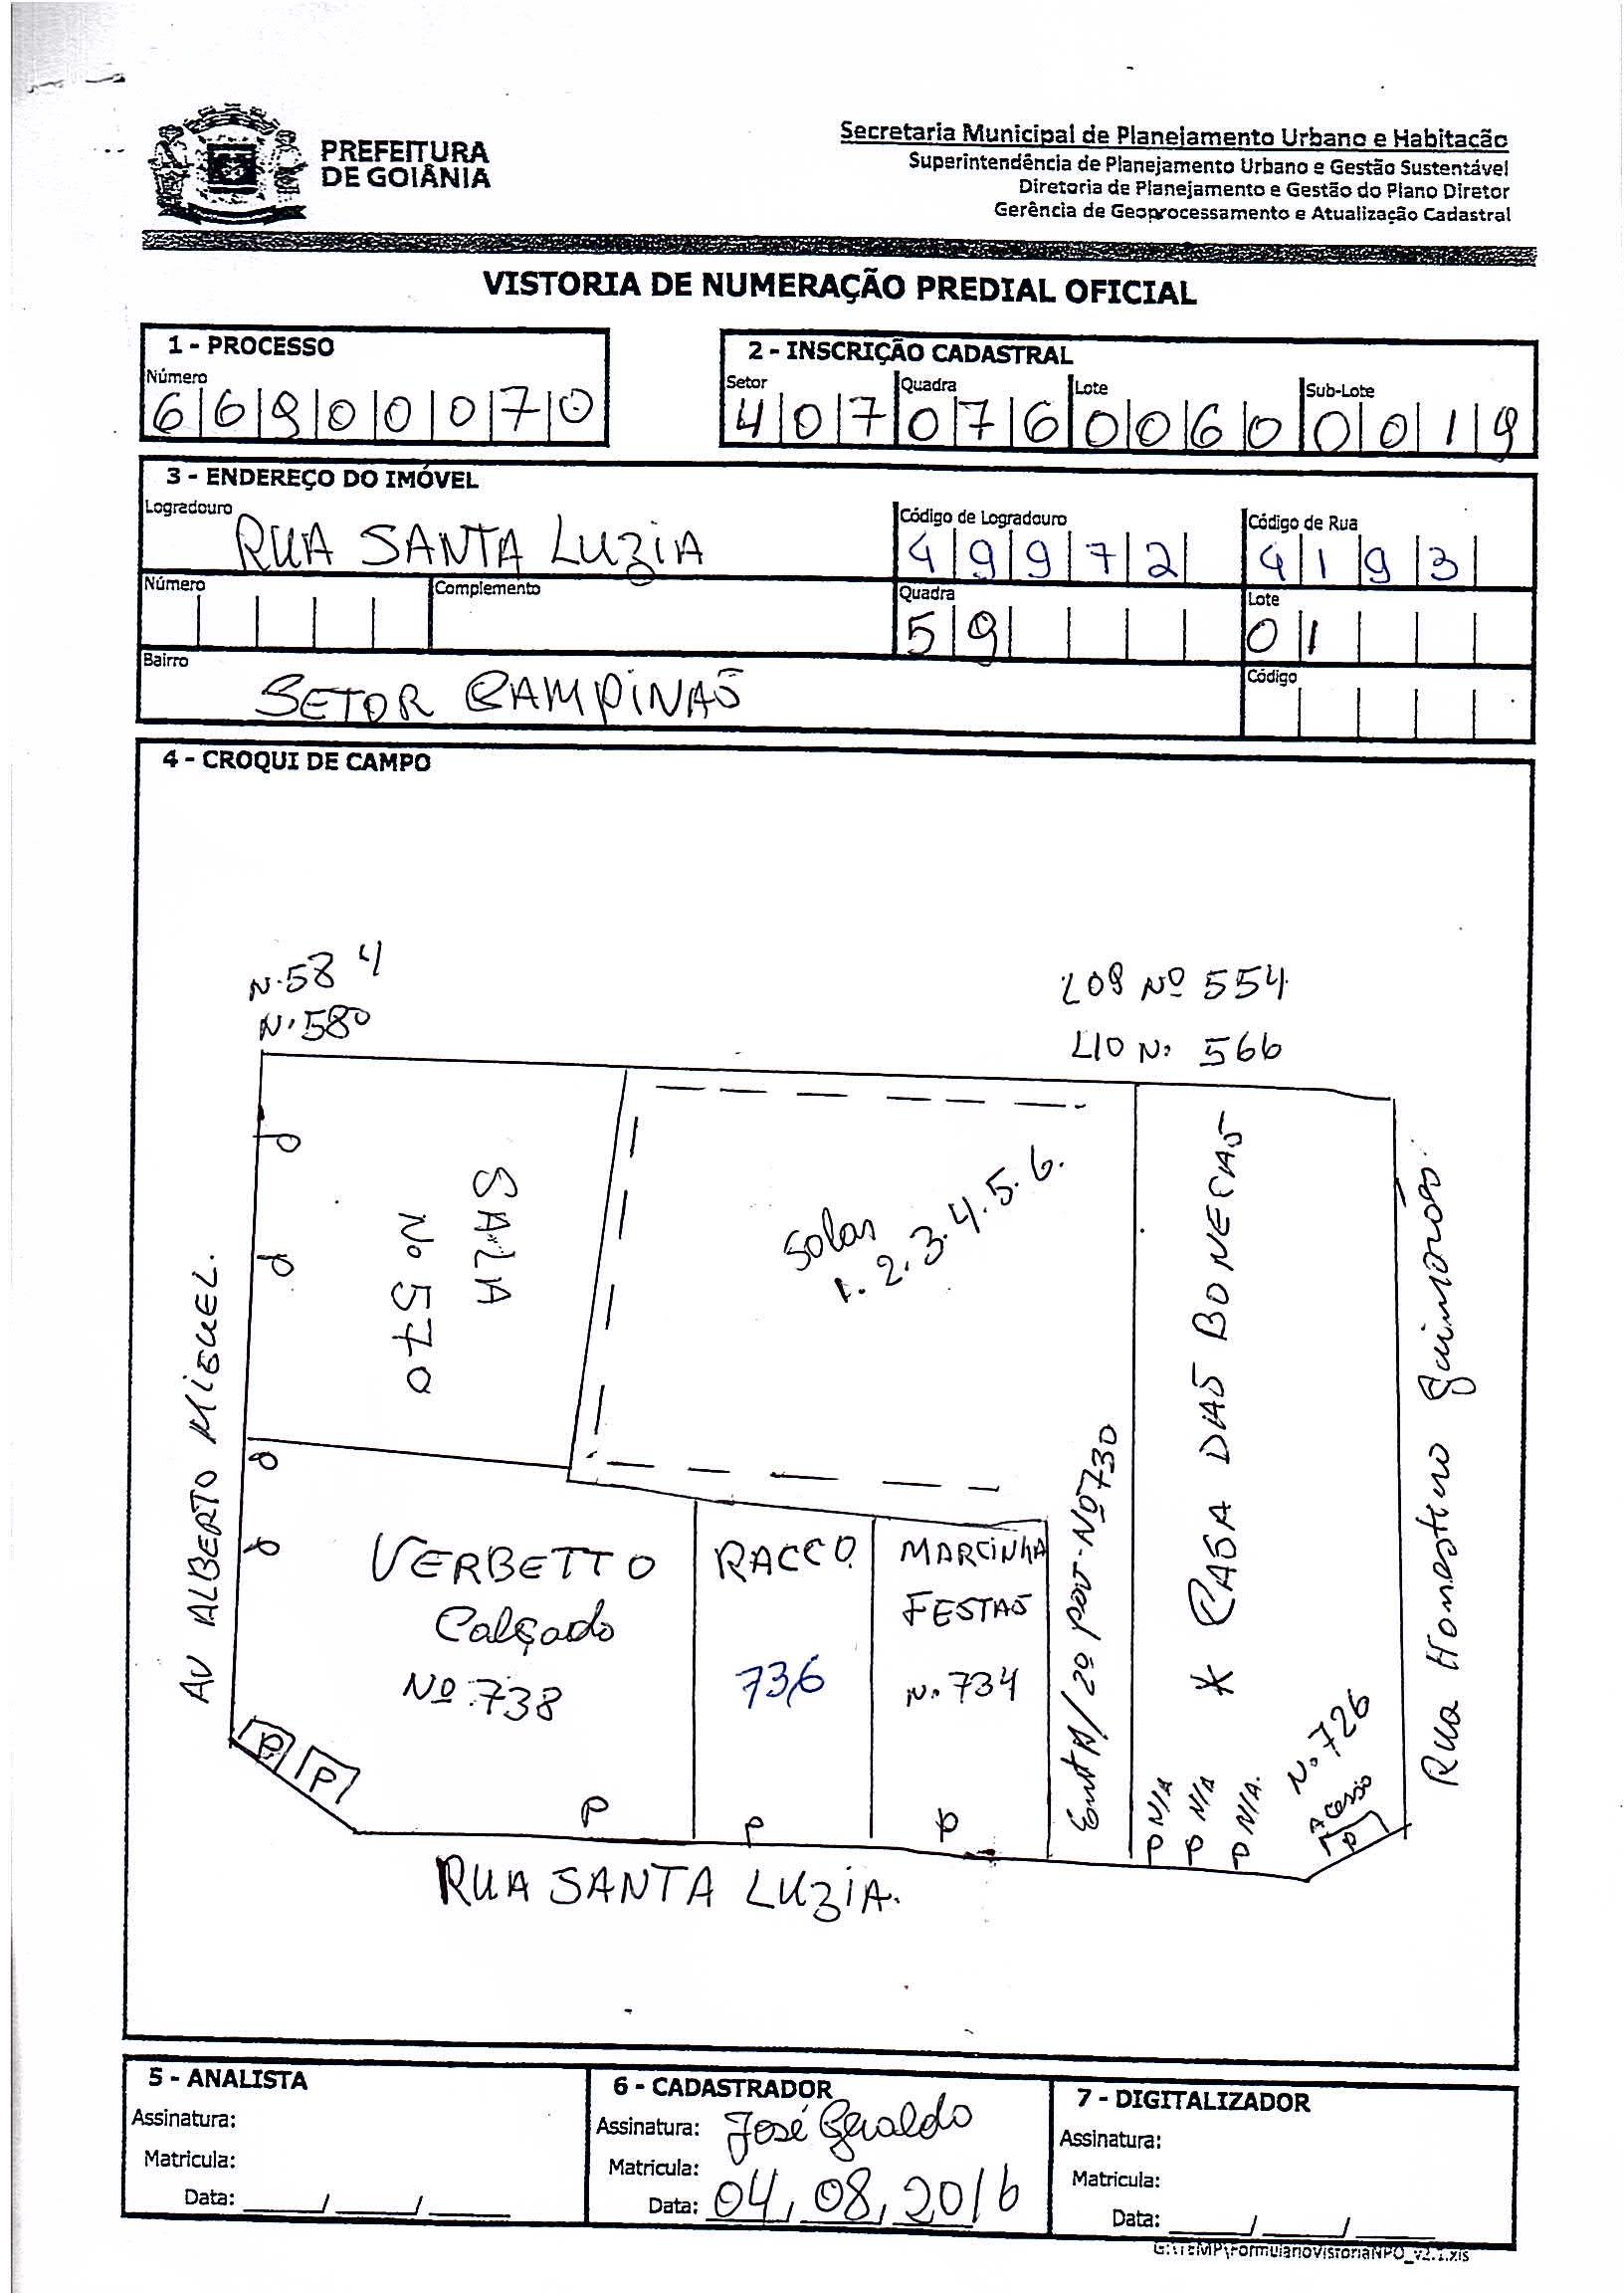 PREFEITURA
DE GOIÂNIA
Secretaria Municipal de Planejamento Urbano e Habitação
Superintendência de Planejamento Urbano e Gestão Sustentável
Diretoria de Planejamento e Gestão do Plano Diretor
Gerência de Geoprocessamento e Atualização Cadastral
VISTORIA DE NUMERAÇÃO PREDIAL OFICIAL
1 - PROCESSO
Número
66900070
2 - INSCRIÇÃO CADASTRAL
Setor Quadra Lote Sub-Lote
407 076 0060 0019
3 - ENDEREÇO DO IMÓVEL
Logradouro Código de Logradouro Código de Rua
RUA SANTA LUZIA 49972 4193
Número Complemento Quadra Lote
59 01
Bairro Código
SETOR CAMPINAS
4 - CROQUI DE CAMPO
N. 584
N. 580
L08 Nº 554
L10 N. 566
SALA
Nº 570
Solas
1. 2. 3. 4. 5. 6.
AV ALBERTO MIGUEL.
VERBETTO
Calçado
Nº 738
RACCO
736
MARCINHA
FESTAS
N. 734
2º pav - Nº 730
* CASA DAS BONECAS
P N/A
P N/A
P N/A.
N. 726
Acesso
P
Rua Honestino Guimarães
P
P
P
P
P
RUA SANTA LUZIA.
5 - ANALISTA
Assinatura:
Matricula:
Data: ____/____/____
6 - CADASTRADOR
Assinatura: José Geraldo
Matricula:
Data: 04/08/2016
7 - DIGITALIZADOR
Assinatura:
Matricula:
Data: ____/____/____
G:\TEMP\FormularioVistoriaNPO_v2.1.xls